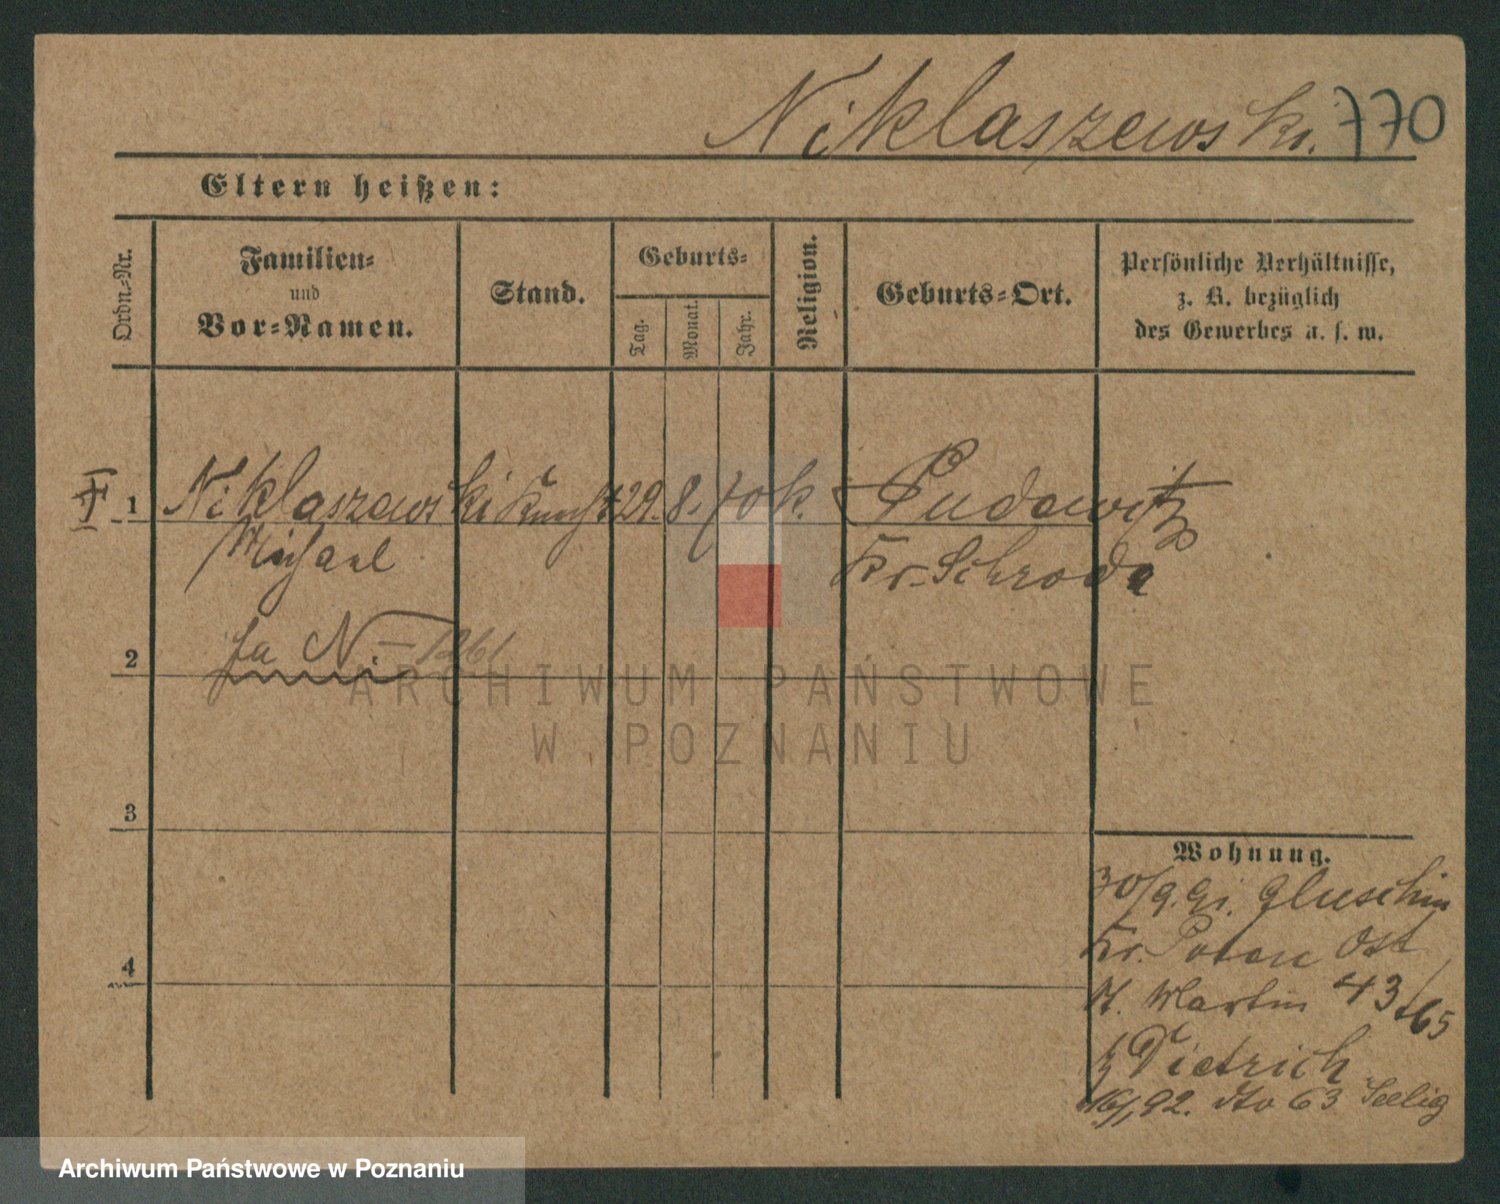 Niklaszewski. 770
Eltern heißen:
Ordn.-Nr.
Familien-
und
Vor-Namen.
Stand.
Geburts-
Tag.
Monat.
Jahr.
Religion.
Geburts-Ort.
Persönliche Verhältnisse,
z. B. bezüglich
des Gewerbes u. s. w.
1 Niklaszewski Knecht 29. 8. 70 k. Pudewitz
Michael Kr. Schroda
2
3
4
Wohnung.
30/9. Gluschin
Kr. Posen Ost
St. Martin 43/
b/ Dietrich
92. dto 63 Seelig
ARCHIWUM PAŃSTWOWE
W POZNANIU
Archiwum Państwowe w Poznaniu